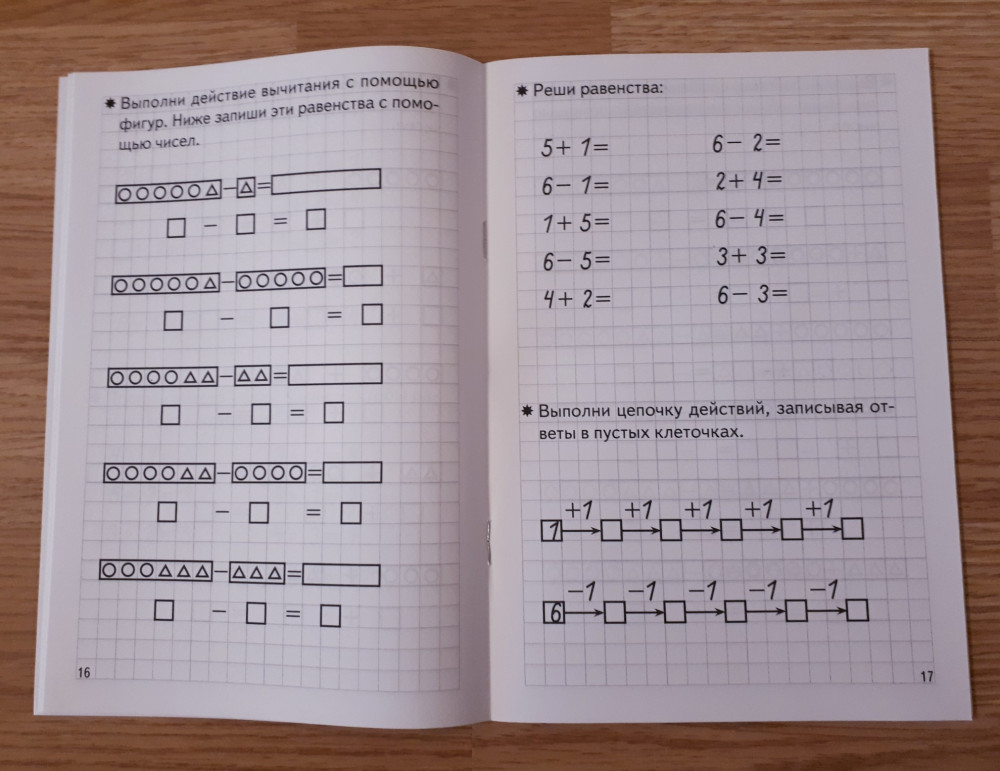 ✷ Выполни действие вычитания с помощью
фигур. Ниже запиши эти равенства с помо-
щью чисел.
○○○○○△−△=
□ − □ = □
○○○○○△−○○○○○=
□ − □ = □
○○○○△△−△△=
□ − □ = □
○○○○△△−○○○○=
□ − □ = □
○○○△△△−△△△=
□ − □ = □
16
✷ Реши равенства:
5+ 1= 6− 2=
6− 1= 2+ 4=
1+ 5= 6− 4=
6− 5= 3+ 3=
4+ 2= 6− 3=
✷ Выполни цепочку действий, записывая от-
веты в пустых клеточках.
+1 +1 +1 +1 +1
1
−1 −1 −1 −1 −1
6
17